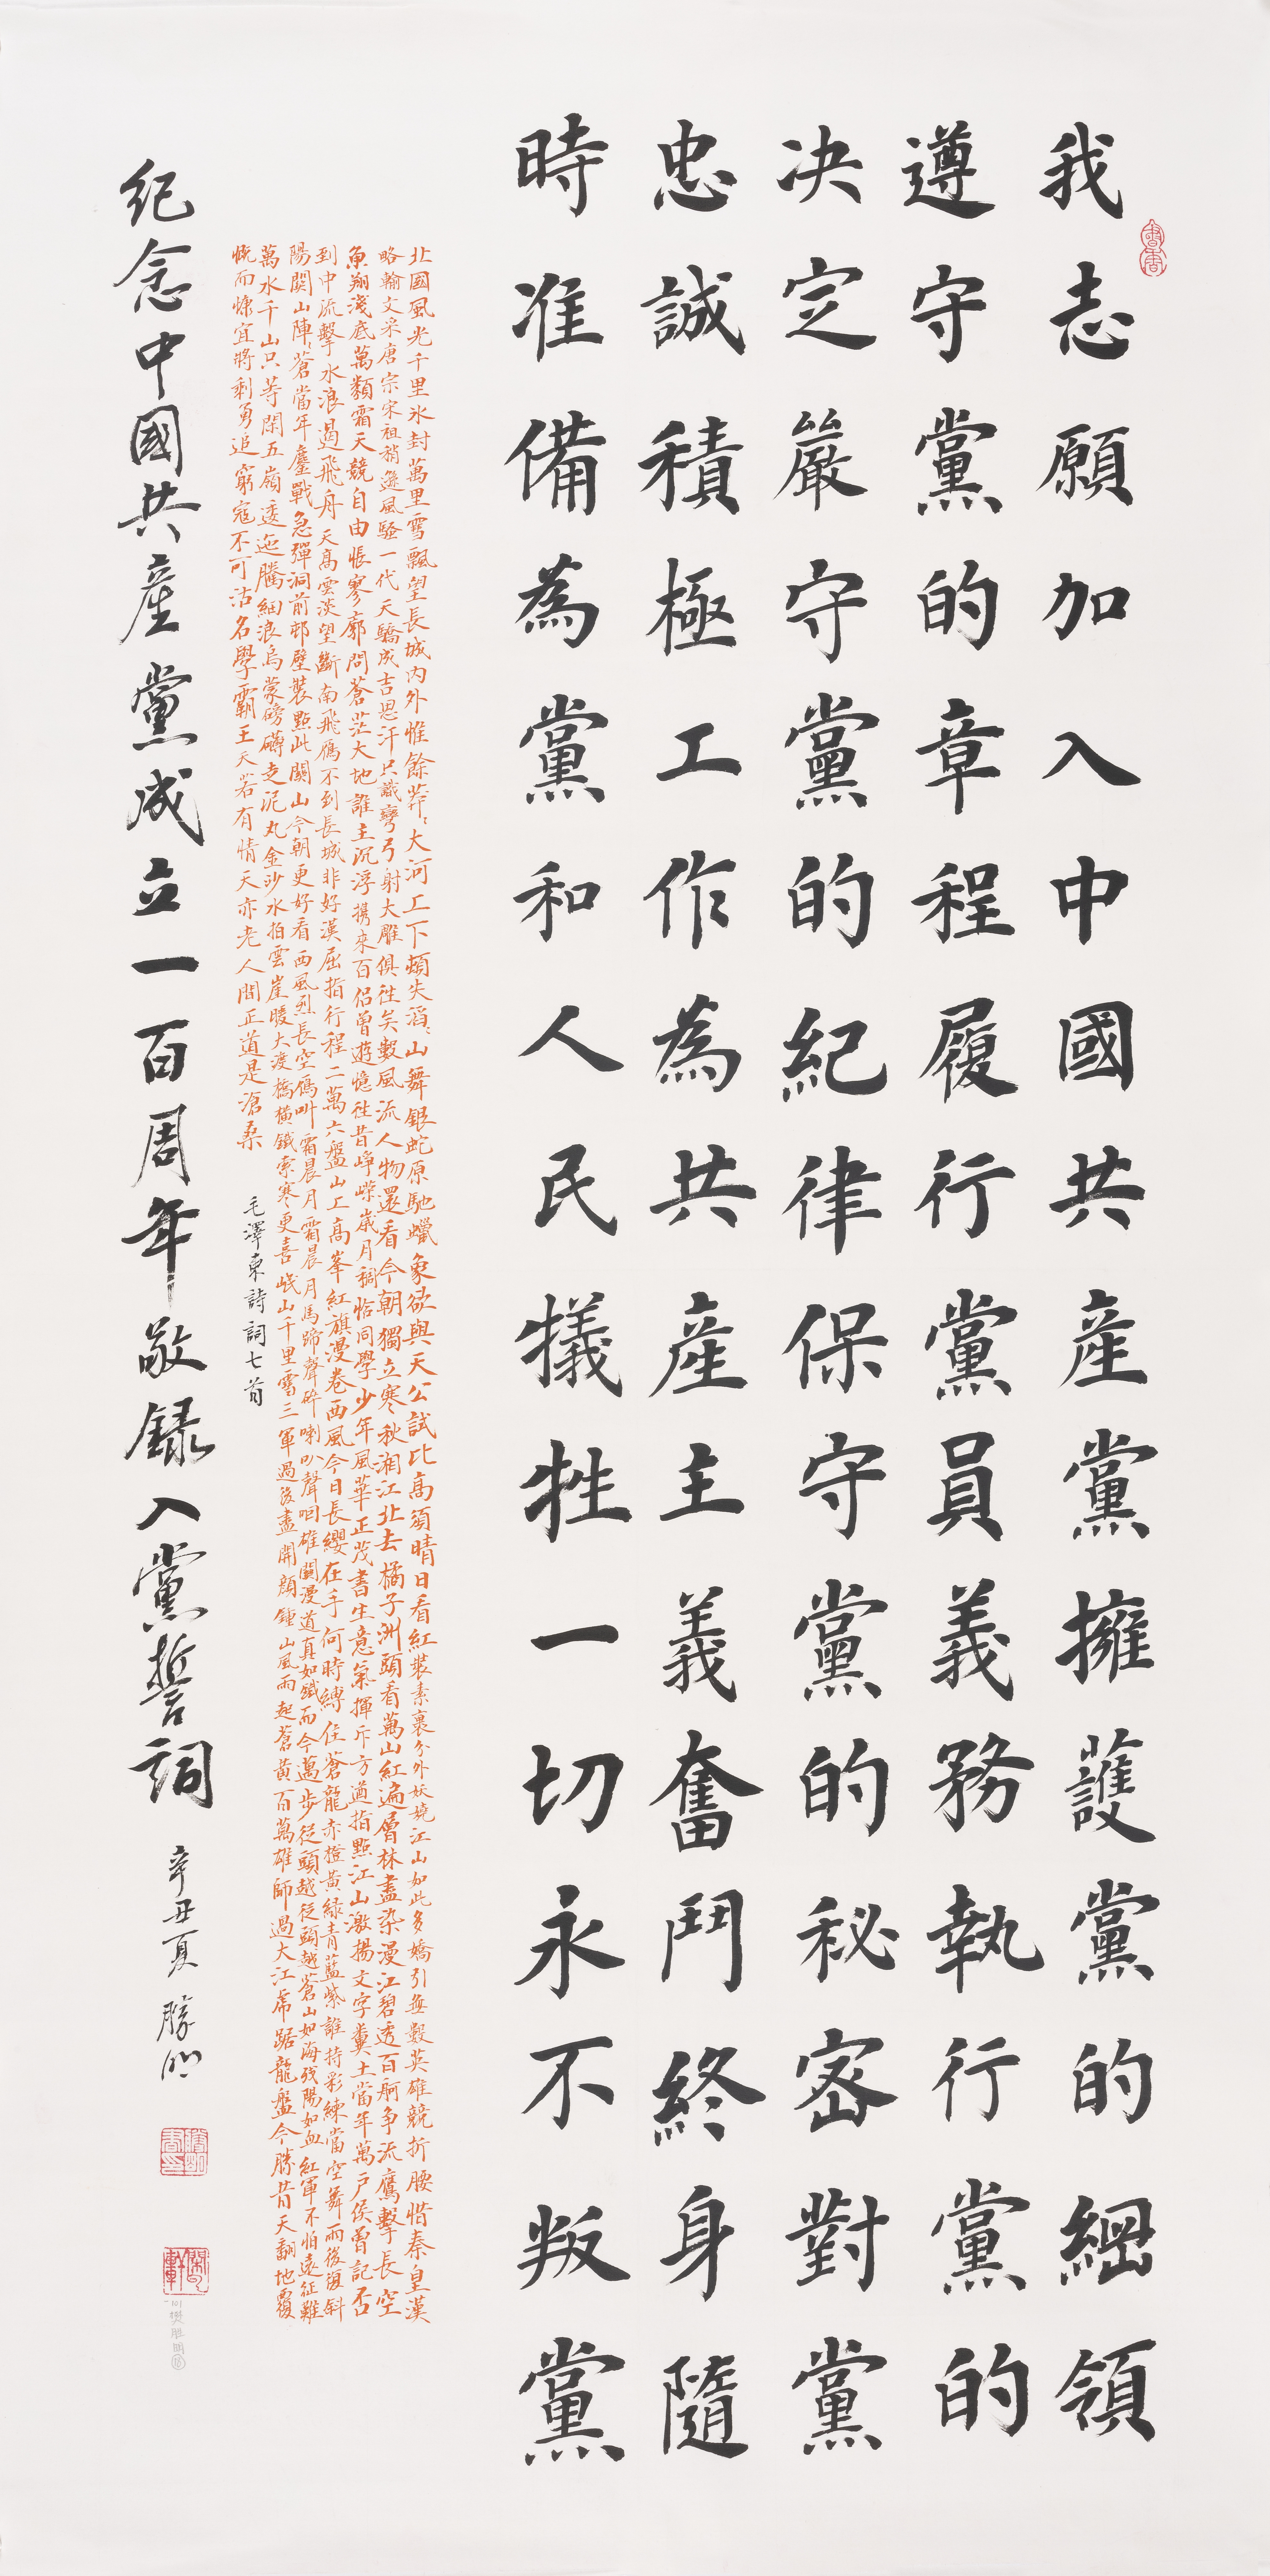 我志願加入中國共産黨擁護黨的綱領
遵守黨的章程履行黨員義務執行黨的
决定嚴守黨的紀律保守黨的秘密對黨
忠誠積極工作為共産主義奮鬥終身隨
時准備為黨和人民犧牲一切永不叛黨
北國風光千里冰封萬里雪飄望長城内外惟餘莽〻大河上下頓失滔〻山舞銀蛇原馳蠟象欲與天公試比高須晴日看紅裝素裹分外妖嬈江山如此多嬌引無數英雄競折腰惜秦皇漢
略輸文采唐宗宋祖稍遜風騷一代天驕成吉思汗只識彎弓射大雕俱往矣數風流人物還看今朝獨立寒秋湘江北去橘子洲頭看萬山紅遍層林盡染漫江碧透百舸争流鷹擊長空
魚翔淺底萬類霜天競自由悵寥廓問蒼茫大地誰主沉浮携來百侣曾遊憶往昔崢嶸歲月稠恰同學少年風華正茂書生意氣揮斥方遒指點江山激揚文字糞土當年萬户侯曾記否
到中流擊水浪遏飛舟天高雲淡望斷南飛雁不到長城非好漢屈指行程二萬六盤山上高峯紅旗漫卷西風今日長纓在手何時縛住蒼龍赤橙黄緑青藍紫誰持彩練當空舞雨後復斜
陽關山陣〻蒼當年鏖戰急彈洞前邨壁裝點此關山今朝更好看西風烈長空雁叫霜晨月霜晨月馬蹄聲碎喇叭聲咽雄關漫道真如鐵而今邁步從頭越從頭越蒼山如海殘陽如血紅軍不怕遠征難
萬水千山只等閑五嶺逶迤騰細浪烏蒙磅礴走泥丸金沙水拍雲崖暖大渡橋橫鐵索寒更喜岷山千里雪三軍過後盡開顔鍾山風雨起蒼黄百萬雄師過大江虎踞龍盤今勝昔天翻地覆
慨而慷宜將剩勇追窮寇不可沽名學霸王天若有情天亦老人間正道是滄桑
毛澤東詩詞七首
紀念中國共産黨成立一百周年敬録入黨誓詞
辛丑夏 勝明